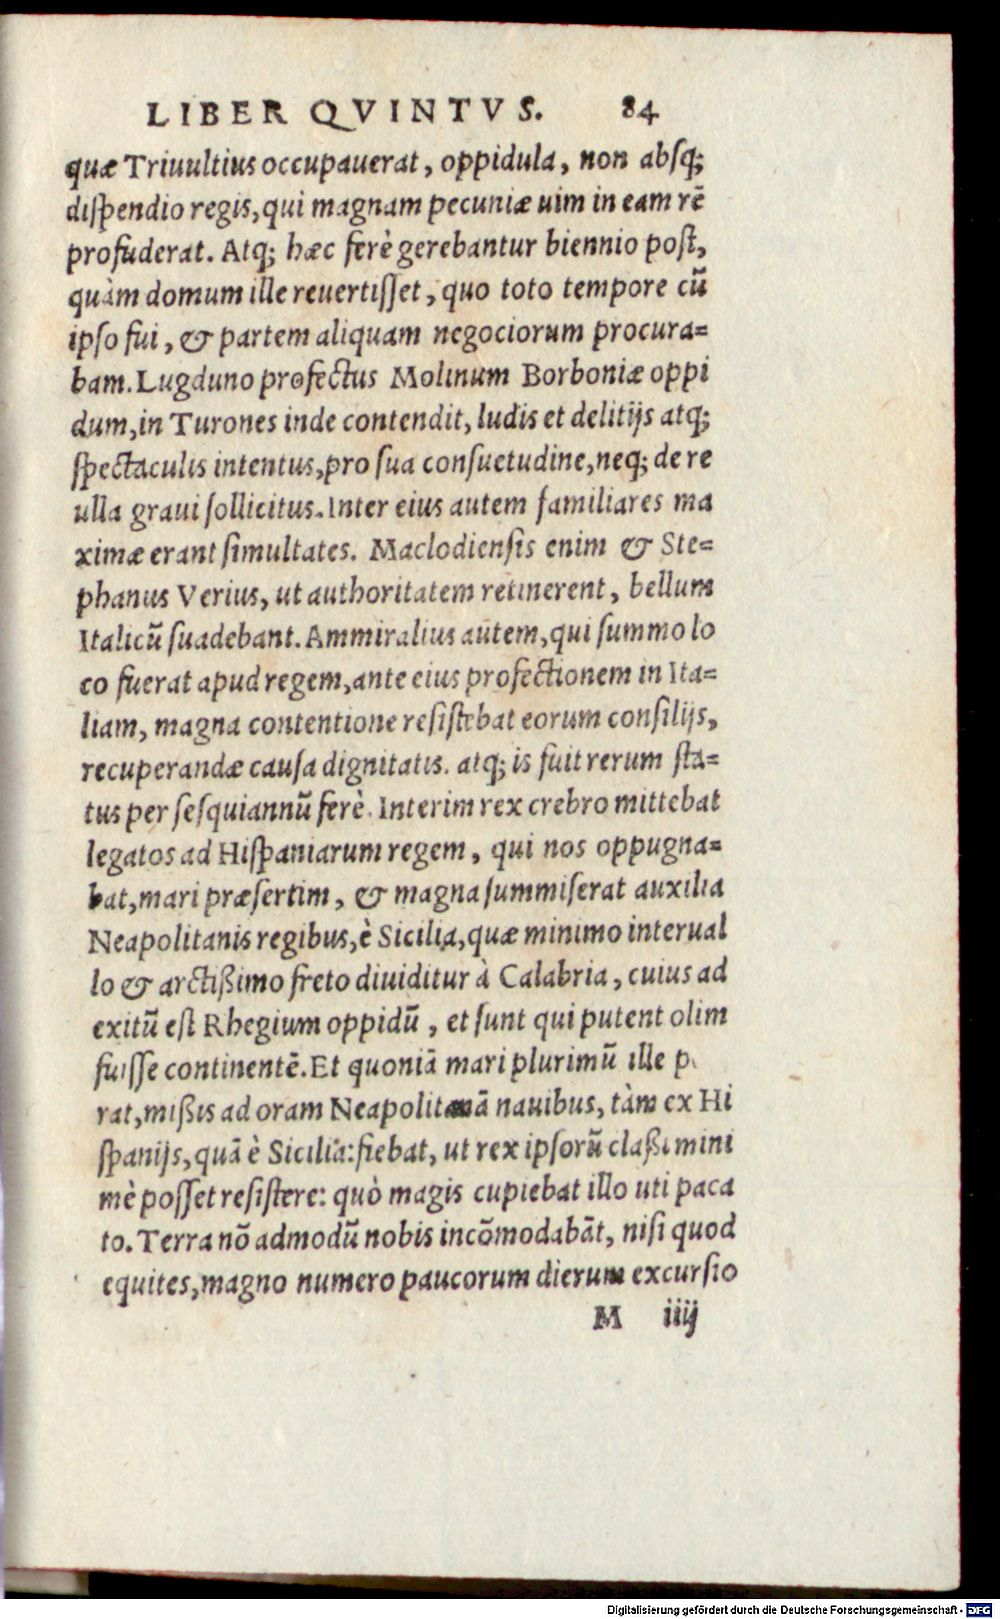 LIBER QVINTVS. 84
quæ Triuultius occupauerat, oppidula, non absq;
dispendio regis, qui magnam pecuniæ uim in eam rē
profuderat. Atq; hæc ferè gerebantur biennio post,
quàm domum ille reuertisset, quo toto tempore cū
ipso fui, & partem aliquam negociorum procura=
bam. Lugduno profectus Molinum Borboniæ oppi
dum, in Turones inde contendit, ludis et delitijs atq;
spectaculis intentus, pro sua consuetudine, neq; de re
ulla graui sollicitus. Inter eius autem familiares ma
ximæ erant simultates. Maclodiensis enim & Ste=
phanus Verius, ut authoritatem retinerent, bellum
Italicū suadebant. Ammiralius autem, qui summo lo
co fuerat apud regem, ante eius profectionem in Ita=
liam, magna contentione resistebat eorum consilijs,
recuperandæ causa dignitatis. atq; is fuit rerum sta=
tus per sesquiannū ferè. Interim rex crebro mittebat
legatos ad Hispaniarum regem, qui nos oppugna=
bat, mari præsertim, & magna summiserat auxilia
Neapolitanis regibus, è Sicilia, quæ minimo interual
lo & arctißimo freto diuiditur à Calabria, cuius ad
exitū est Rhegium oppidū, et sunt qui putent olim
fuisse continentē. Et quoniā mari plurimū ille p
rat, mißis ad oram Neapolitanā nauibus, tàm ex Hi
spanijs, quā è Sicilia: fiebat, ut rex ipsorū claßi mini
mè posset resistere: quò magis cupiebat illo uti paca
to. Terra nō admodū nobis incōmodabāt, nisi quod
equites, magno numero paucorum dierum excursio
M iiij
Digitalisierung gefördert durch die Deutsche Forschungsgemeinschaft - DFG